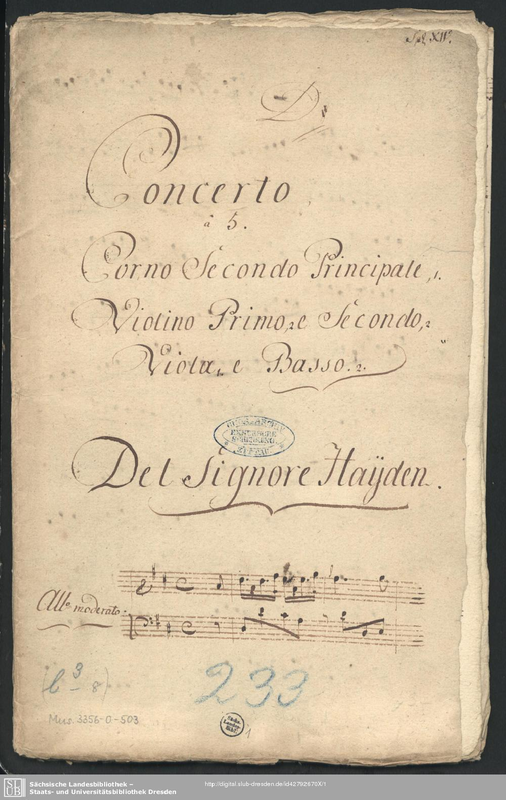 D
Concerto
à 5.
Corno Secondo Principale, 1.
Violino Primo, 2 e Secondo, 2
Viola, 1. e Basso. 2.
Del Signore Haÿden.
All.º moderato
233
Mus. 3356-O-503
1
Sächsische Landesbibliothek –
Staats- und Universitätsbibliothek Dresden
http://digital.slub-dresden.de/id42792670X/1